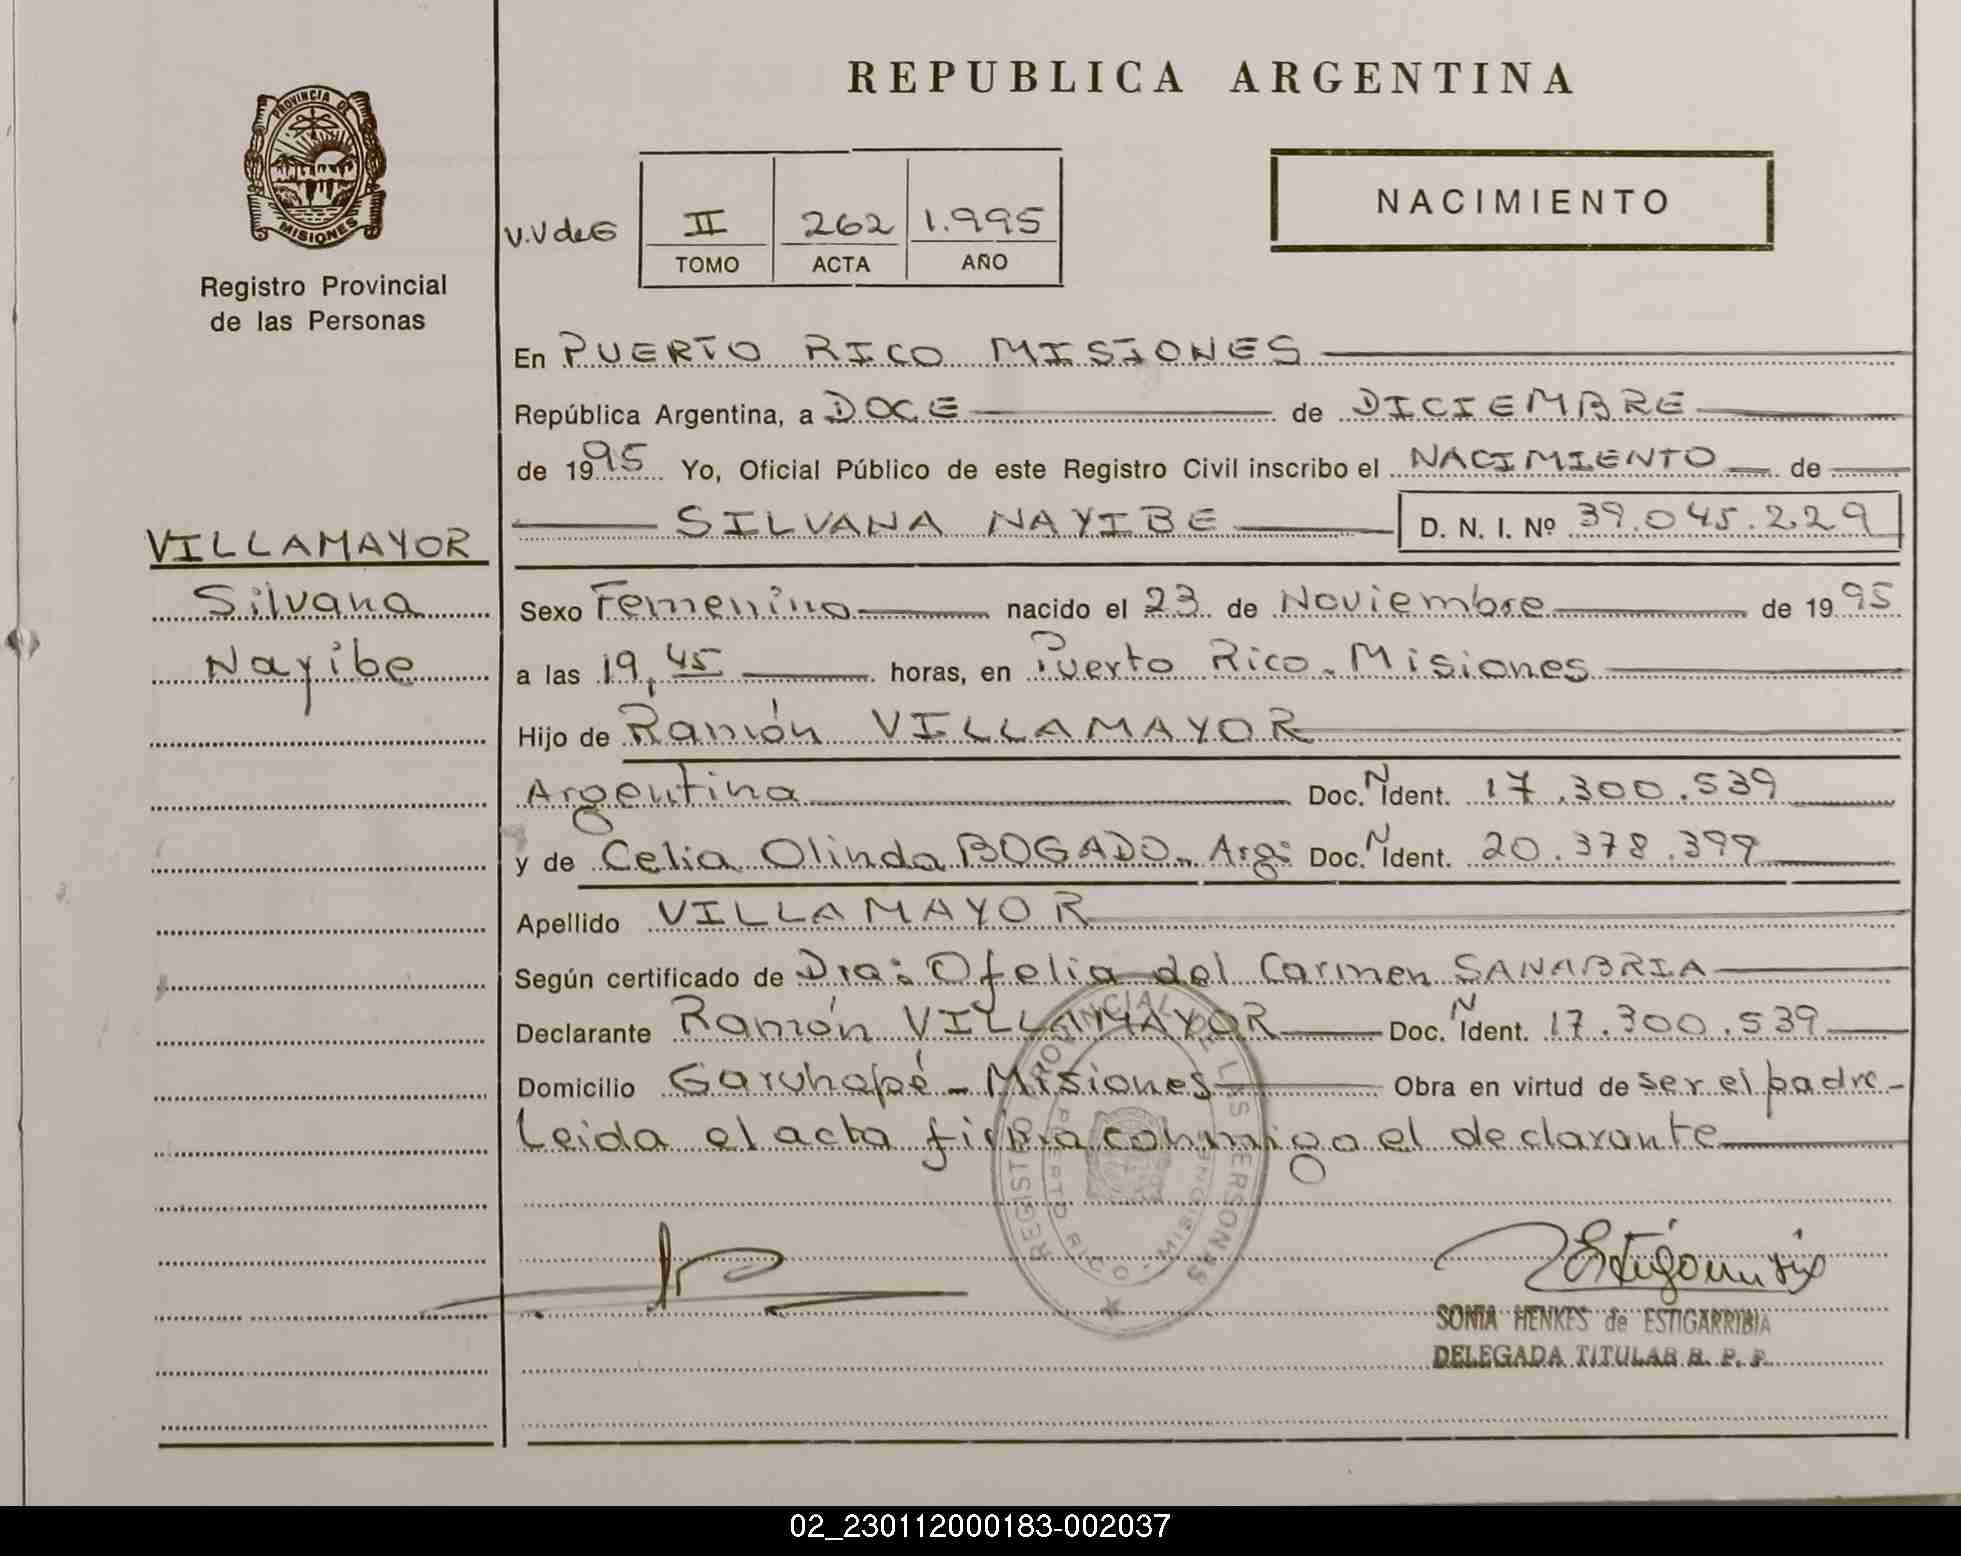 REPUBLICA ARGENTINA
PROVINCIA DE MISIONES
Registro Provincial
de las Personas
V.V de G
II 262 1.995
TOMO ACTA AÑO
NACIMIENTO
En PUERTO RICO MISIONES
República Argentina, a DOCE de DICIEMBRE
de 1995 Yo, Oficial Público de este Registro Civil inscribo el NACIMIENTO de
SILVANA NAYIBE D. N. I. Nº 39.045.229
VILLAMAYOR
Silvana
Nayibe
Sexo Femenino nacido el 23 de Noviembre de 1995
a las 19,45 horas, en Puerto Rico. Misiones
Hijo de Ramón VILLAMAYOR
Argentina Doc. N Ident. 17.300.539
y de Celia Olinda BOGADO. Arg: Doc. N Ident. 20.378.399
Apellido VILLAMAYOR
Según certificado de Dra: Ofelia del Carmen SANABRIA
Declarante Ramón VILLAMAYOR Doc. N Ident. 17.300.539
Domicilio Garuhapé - Misiones Obra en virtud de ser el padre-
Leida el acta firma conmigo el declarante
REGISTRO PROVINCIAL DE LAS PERSONAS
PUERTO RICO - MISIONES
SONIA HENKES de ESTIGARRIBIA
DELEGADA TITULAR R. P. P.
02_230112000183-002037